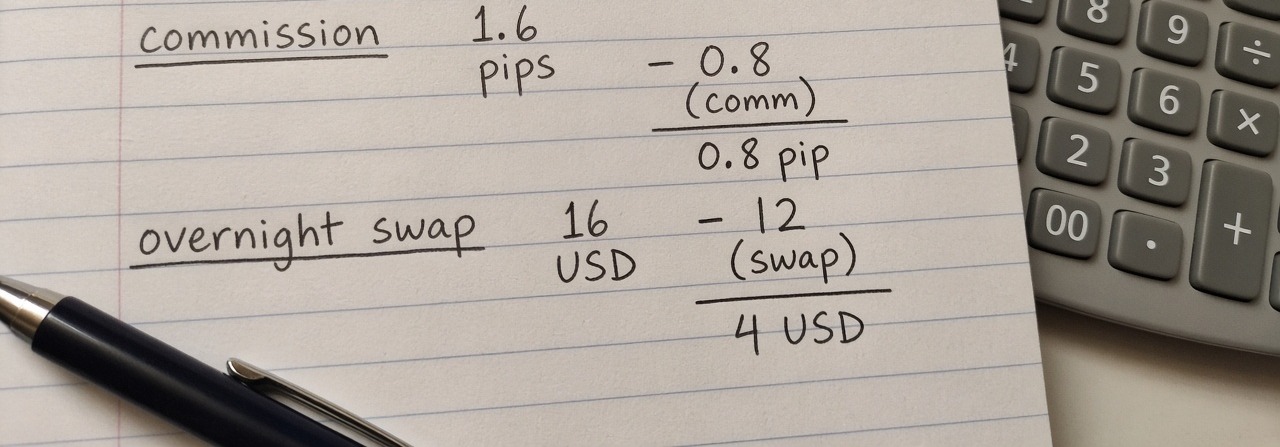 commission 1.6 pips - 0.8 (comm)
0.8 pip
overnight swap 16 USD - 12 (swap)
4 USD
8 9 ÷
4 5 6 ×
2 3 +
00 .